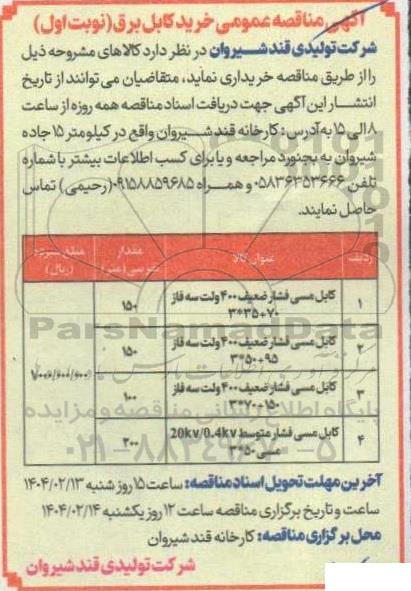 آگهی مناقصه عمومی خرید کابل برق (نوبت اول)
شرکت تولیدی قند شیروان در نظر دارد کالاهای مشروحه ذیل
را از طریق مناقصه خریداری نماید، متقاضیان می توانند از تاریخ
انتشار این آگهی جهت دریافت اسناد مناقصه همه روزه از ساعت
۸ الی ۱۵ به آدرس: کارخانه قند شیروان واقع در کیلومتر ۱۵ جاده
شیروان به بجنورد مراجعه و یا برای کسب اطلاعات بیشتر با شماره
تلفن ۰۵۸۳۶۳۵۳۶۶۶ و همراه ۰۹۱۵۸۸۵۹۶۸۵ (رحیمی) تماس
حاصل نمایند.
ردیف عنوان کالا مقدار
۱ کابل مسی فشار ضعیف ۴۰۰ ولت سه فاز ۱۵۰
۳*۳۵+۷۰
۲ کابل مسی فشار ضعیف ۴۰۰ ولت سه فاز ۱۵۰
۳*۵۰+۹۵
۳ کابل مسی فشار ضعیف ۴۰۰ ولت سه فاز ۱۰۰
۳*۷۰+۱۵۰
۴ کابل مسی فشار متوسط 20kv/0.4kv ۲۰۰
مسی ۵۰*۳
ParsNamadData
پایگاه اطلاع رسانی مناقصه و مزایده
۰۲۱-۸۸۳۴۹۶۷۰-۵
آخرین مهلت تحویل اسناد مناقصه: ساعت ۱۵ روز شنبه ۱۴۰۴/۰۲/۱۳
ساعت و تاریخ برگزاری مناقصه ساعت ۱۲ روز یکشنبه ۱۴۰۴/۰۲/۱۴
محل برگزاری مناقصه: کارخانه قند شیروان
شرکت تولیدی قند شیروان